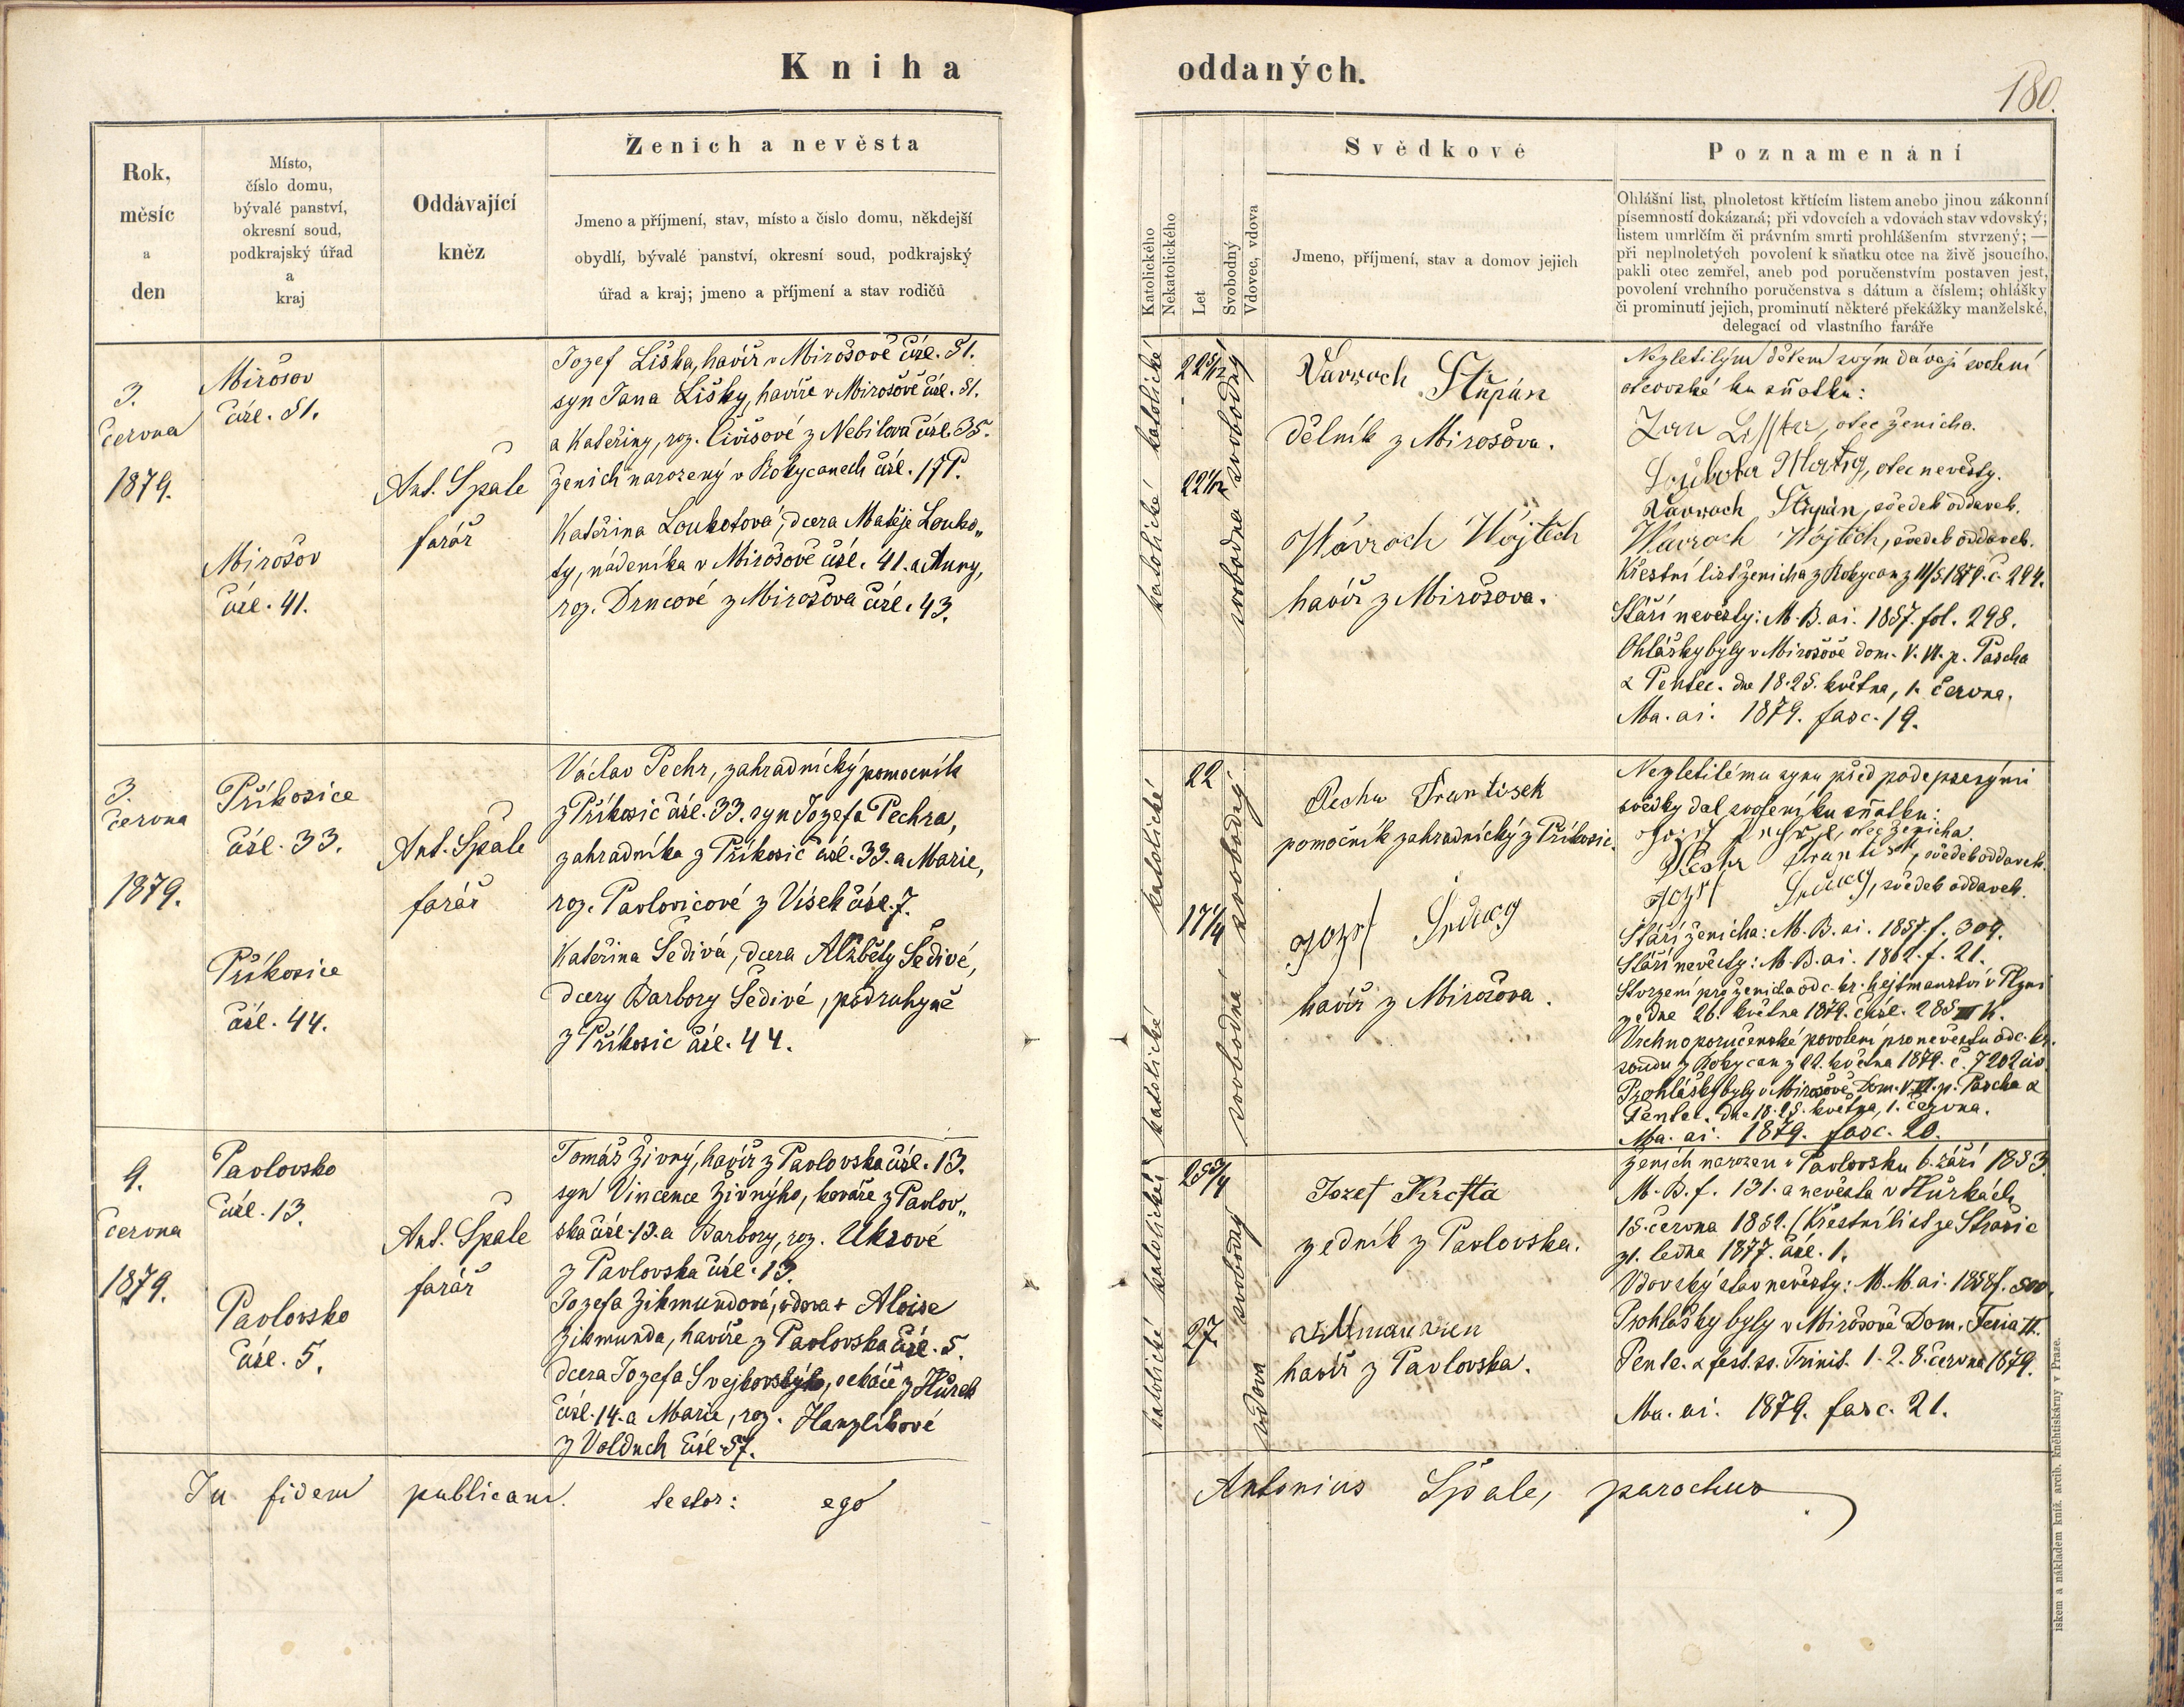 Kniha oddaných.
180.
Rok,
měsíc
a
den
Místo,
číslo domu,
bývalé panství,
okresní soud,
podkrajský úřad
a
kraj
Oddávající
kněz
Ženich a nevěsta
Jmeno a příjmení, stav, místo a číslo domu, někdejší
obydlí, bývalé panství, okresní soud, podkrajský
úřad a kraj; jmeno a příjmení a stav rodičů
Katolického
Nekatolického
Let
Svobodný
Vdovec, vdova
Svědkové
Jmeno, příjmení, stav a domov jejich
Poznamenání
Ohlášní list, plnoletost křtícím listem anebo jinou zákonní
písemností dokázaná; při vdovcích a vdovách stav vdovský;
listem umrlčím či právním smrti prohlášením stvrzený; —
při neplnoletých povolení k sňatku otce na živě jsoucího,
pakli otec zemřel, aneb pod poručenstvím postaven jest,
povolení vrchního poručenstva s dátum a číslem; ohlášky
či prominutí jejich, prominutí některé překážky manželské,
delegací od vlastního faráře
3.
června
1879.
Mirošov
čísl. 81.
Mirošov
čísl. 41.
Ant. Špale
farář
Jozef Liška, havíř v Mirošově čísl. 81.
syn Jana Lišky, havíře v Mirošově čísl. 81.
a Kateřiny, roz. Čivišové z Nebilova čísl. 35.
ženich narozený v Rokycanech čísl.
Kateřina Loukotová, dcera Matěje Louko„
ty, nádeníka v Mirošově čísl. 41. a Anny,
roz. Drncové z Mirošova čísl. 43.
katolické
22 5/12
svobodný
katolické
22 1/12
svobodná
Vavroch Štěpán
dělník z Mirošova.
Wávroch Wojtěch
havíř z Mirošova.
Nezletilým dětem svým dávají svolení
otcovské ku sňatku:
Jan Lisska, otec ženicha.
Loukota Matěg, otec nevěsty.
Vavroch Štěpán, svědek oddavek.
Wávroch Wojtěch, svědek oddavek.
Křestní list ženicha z Rokycan z 11/5 1879. č. 294.
Stáří nevěsty: M. B. ai. 1857. fol. 298.
Ohlášky byly v Mirošově dom. V. VI. p. Pascha
& Pentec. dne 18. 25. května, 1. června.
Ma. ai. 1879. fasc. 19.
3.
června
1879.
Příkosice
čísl. 33.
Příkosice
čísl. 44.
Ant. Špale
farář
Václav Pechr, zahradnický pomocník
z Příkosic čísl. 33. syn Jozefa Pechra,
zahradníka z Příkosic čísl. 33. a Marie,
roz. Pavlovicové z Vísek čísl. 7.
Kateřina Šedivá, dcera Alžběty Šedivé,
dcery Barbory Šedivé, podruhyně
z Příkosic čísl. 44.
katolické
22
svobodný
katolické
17 1/4
svobodná
Pechr František
pomočník zahradnický z Příkosic.
Jozef
havíř z Mirošova.
Nezletilému synu před podepsanými
svědky dal svolení ku sňatku:
otec ženicha.
Pechr František, svědek oddavek.
Jozef svědek oddavek.
Stáří ženicha: M. B. ai. 1857. f. 309.
Stáří nevěsty: M. B. ai. 1862. f. 21.
Stvrzení pro ženicha od c. kr. hejtmanství v Plzni
ze dne 26. května 1879. čísl. 285 III K.
Vrchnoporučenské povolení pro nevěstu od c. kr.
soudu z Rokycan z 22. května 1879. č. 7202
Prohlášky byly v Mirošově Dom. V. VI. p. Pascha &
Pentec. dne 18. 25. května, 1. června.
Ma. ai. 1879. fasc. 20.
9.
června
1879.
Pavlovsko
čísl. 13.
Pavlovsko
čísl. 5.
Ant. Špale
farář
Tomáš Živný, havíř z Pavlovska čísl. 13.
syn Vincence Živnýho, kováře z Pavlov„
ska čísl. 13. a Barbory, roz. Uksové
z Pavlovska čísl. 13.
Jozefa Zikmundová, vdova † Aloisa
Zikmunda, havíře z Pavlovska čísl. 5.
dcera Jozefa Svejkovskýho, cvokáře z Hůrek
čísl. 14. a Marie, roz. Hanzlíkové
z Volduch čísl. 57.
katolické
25 3/4
svobodný
katolické
27
vdova
Jozef Krofta
zedník z Pavlovska.
havíř z Pavlovska.
Ženich narozen v Pavlovsku 6. září 1853
M. B. f. 131. a nevěsta v Hůrkách
15. června 1852. (Křestní list ze Strašic
z 1. ledna 1877. čísl. 1.
Vdovský stav nevěsty: M. M. ai. 1858 f. 500.
Prohlášky byly v Mirošově Dom. Feria II.
Pente. & fest. ss. Trinit. 1. 2. 8. června 1879.
Ma. ai. 1879. fasc. 21.
In fidem publicam testor: ego Antonius Špale, parochus
tiskem a nákladem kníž. arcib. kněhtiskárny v Praze.